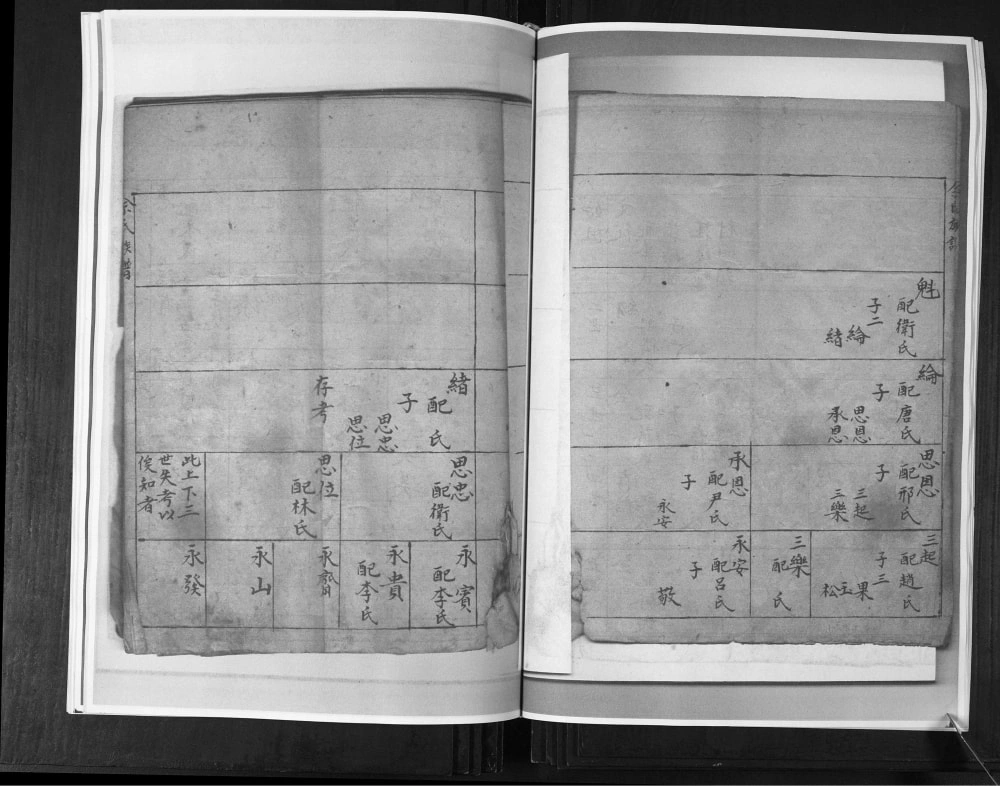 魁
配衛氏
子二
綸
緒
綸
配唐氏
子
思恩
承恩
思恩
配邢氏
子
三起
三樂
承恩
配尹氏
子
永安
三起
配趙氏
子三
果
玉
松
三樂
配 氏
永安
配呂氏
子
敬
緒
配 氏
子
思忠
思位
存考
思忠
配衛氏
思位
配林氏
此上下三
世失考以
俟知者
永賓
配李氏
永貴
配李氏
永齋
永山
永發
余氏族譜